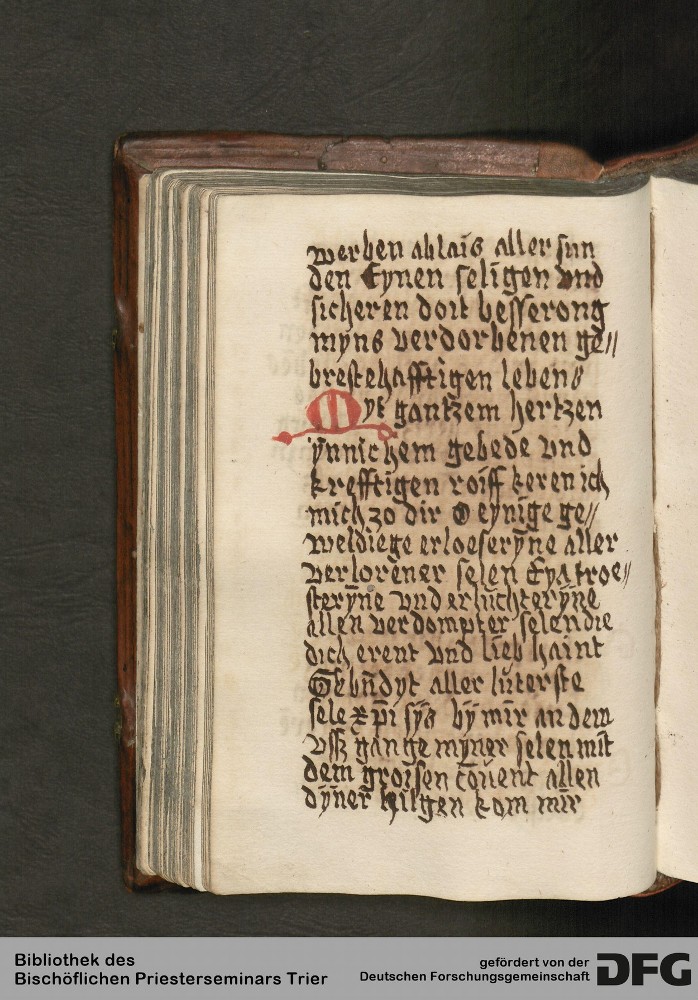 werben ablais aller sun
den Eynen seligen vnd
sicheren doit besserong
myns verdorbenen ge//
brestehafftigen lebens
Myt gantzem hertzen
ynnichem gebede vnd
krefftigen roiff keren ich
mich zo dir O eynige ge//
weldiege erloeserȳne aller
verlorener selen Eya troe//
sterȳne vnd erluchterȳne
allen verdompter selen die
dich erent vnd lieb haint
Gebn̄dyt aller luterste
sele xp̄i sys by mir an dem
vsz gange myner selen mit
dem groisen couent allen
dyner hilgen kom mir
Bibliothek des
Bischöflichen Priesterseminars Trier
gefördert von der
Deutschen Forschungsgemeinschaft
DFG